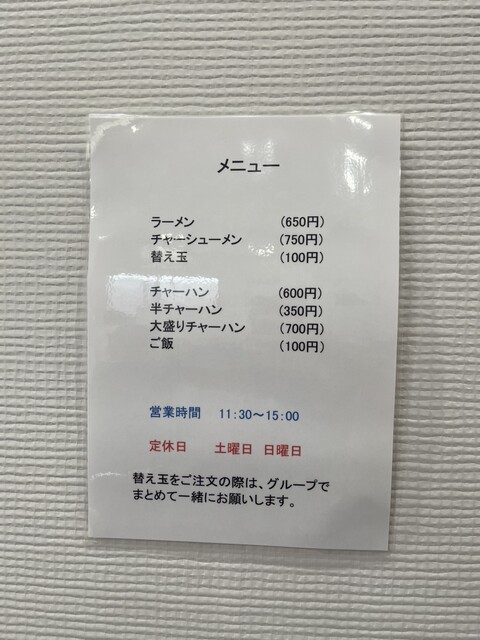 メニュー
ラーメン (650円)
チャーシューメン (750円)
替え玉 (100円)
チャーハン (600円)
半チャーハン (350円)
大盛りチャーハン (700円)
ご飯 (100円)
営業時間 11:30～15:00
定休日 土曜日 日曜日
替え玉をご注文の際は、グループで
まとめて一緒にお願いします。